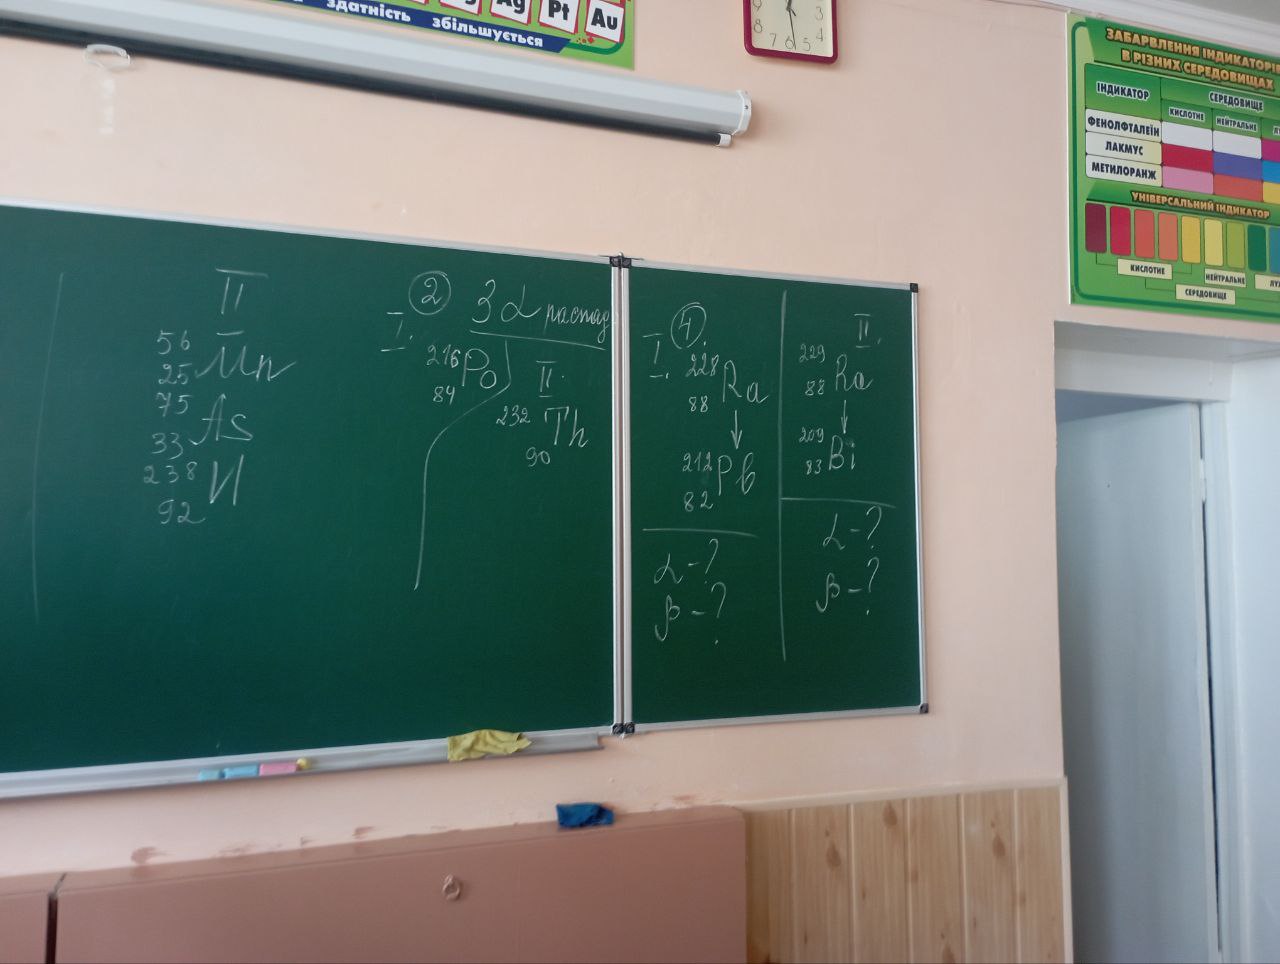 здатність збільшується
Ag Pt Au
9 3
8 4
7 6 5
ЗАБАРВЛЕННЯ ІНДИКАТОРІВ
В РІЗНИХ СЕРЕДОВИЩАХ
ІНДИКАТОР
СЕРЕДОВИЩЕ
КИСЛОТНЕ НЕЙТРАЛЬНЕ
ФЕНОЛФТАЛЕЇН
ЛАКМУС
МЕТИЛОРАНЖ
УНІВЕРСАЛЬНИЙ ІНДИКАТОР
КИСЛОТНЕ
НЕЙТРАЛЬНЕ
СЕРЕДОВИЩЕ
II
56
25 Mn
75
33 As
238
92 U
2 3 α распад
I.
216
84 Po
II.
232
90 Th
4.
I.
228
88 Ra
↓
212
82 Pb
α - ?
β - ?
II.
229
88 Ra
↓
209
83 Bi
α - ?
β - ?